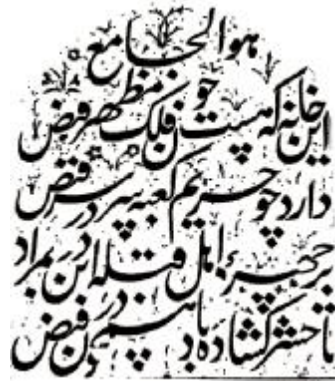 هوالجامع
این خانه که هست چون فلک مظهر فیض
دارد چو حریم کعبه سر در سر فیض
بر چهرهٔ اهل قبله این در بمراد
تا حشر گشاده باد همچون در فیض